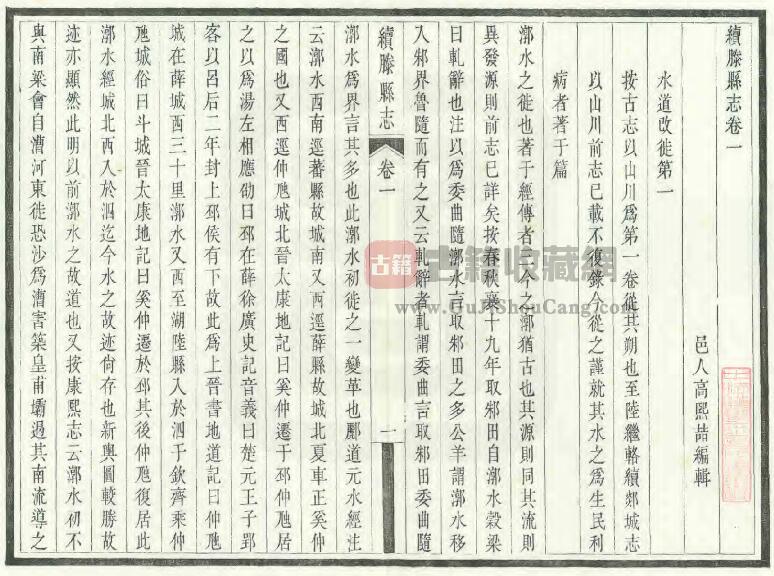 續滕縣志卷一
邑人高熙喆編輯
水道改徙第一
按古志以山川爲第一卷從其朔也至陸繼輅續郯城志
以山川前志已載不復錄今從之謹就其水之爲生民利
病者著于篇
漷水之徙也著于經傳者三今之漷猶古也其源則同其流則
異發源則前志已詳矣按春秋襄十九年取邾田自漷水穀梁
曰軋辭也注以爲委曲隨漷水言取邾田之多公羊謂漷水移
入邾界魯隨而有之又云軋辭者軋謂委曲言取邾田委曲隨
續滕縣志
卷一
一
漷水爲界言其多也此漷水初徙之一變革也酈道元水經注
云漷水西南逕蕃縣故城南又西逕薛縣故城北夏車正奚仲
之國也又西逕仲虺城北晉太康地記曰奚仲遷于邳仲虺居
之以爲湯左相應劭曰邳在薛徐廣史記音義曰楚元王子郢
客以呂后二年封上邳侯有下故此爲上晉書地道記曰仲虺
城在薛城西三十里漷水又西至湖陸縣入於泗于欽齊乘仲
虺城俗曰斗城晉太康地記曰奚仲遷於邳其後仲虺復居此
漷水經城北西入於泗迄今水之故迹尚存也新輿圖較勝故
迹亦顯然此明以前漷水之故道也又按康熙志云漷水初不
與南梁會自漕河東徙恐沙爲漕害築皇甫壩遏其南流導之
古籍
古籍收藏網
www.GuJiShouCang.com